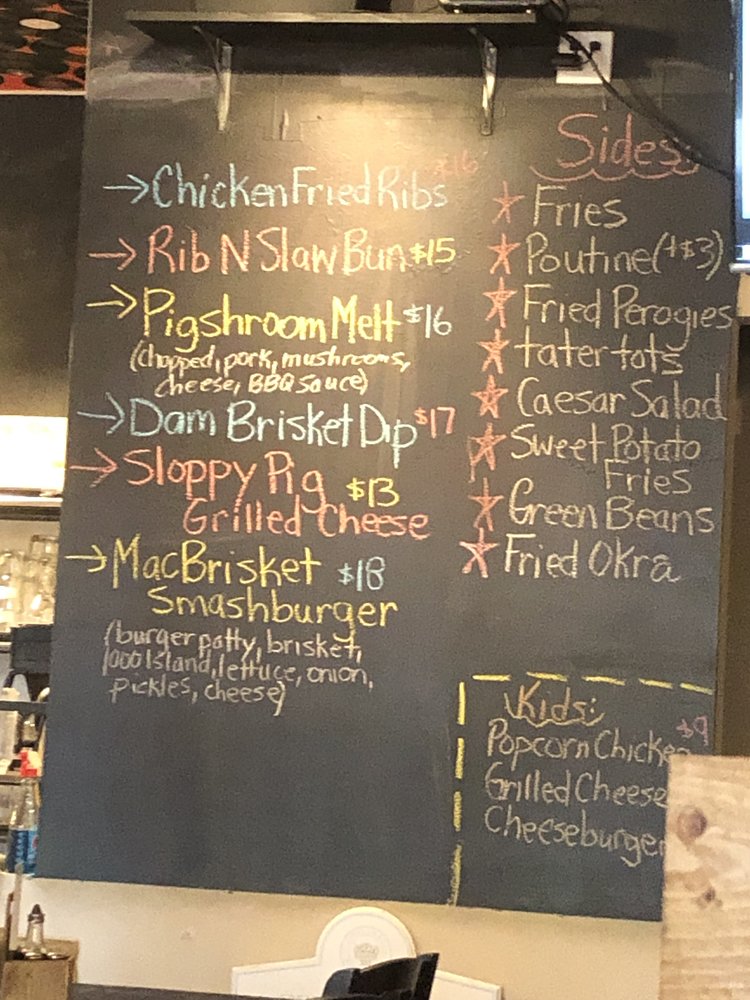 →Chicken Fried Ribs $16
→Rib N Slaw Bun $15
→Pigshroom Melt $16
(chopped, pork, mushrooms,
cheese, BBQ sauce)
→Dam Brisket Dip $17
→Sloppy Pig $13
Grilled Cheese
→MacBrisket $18
Smashburger
(burger patty, brisket,
1000 Island, lettuce, onion,
pickles, cheese)
Sides:
★Fries
★Poutine(+$3)
★Fried Perogies
★tater tots
★Caesar Salad
★Sweet Potato
Fries
★Green Beans
★Fried Okra
Kids:
$9
Popcorn Chicken
Grilled Cheese
Cheeseburger